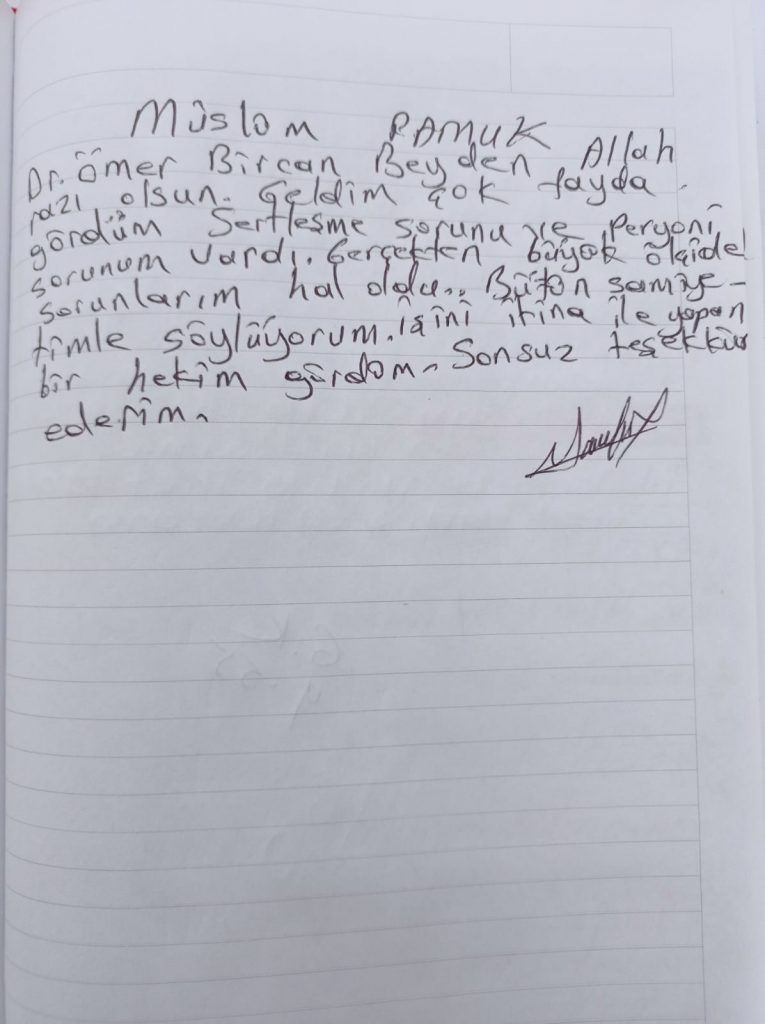 Müslom PAMUK
Dr. Ömer Bircan Beyden Allah
razı olsun. Geldim çok fayda
gördüm Sertleşme sorunu ve peryoni
sorunum vardı. Gerçekten büyük ölçüde
sorunlarım hal oldu.. Bütün samiye-
timle söylüyorum. işini itina ile yapan
bir hekim gördom. Sonsuz teşekkür
ederim.